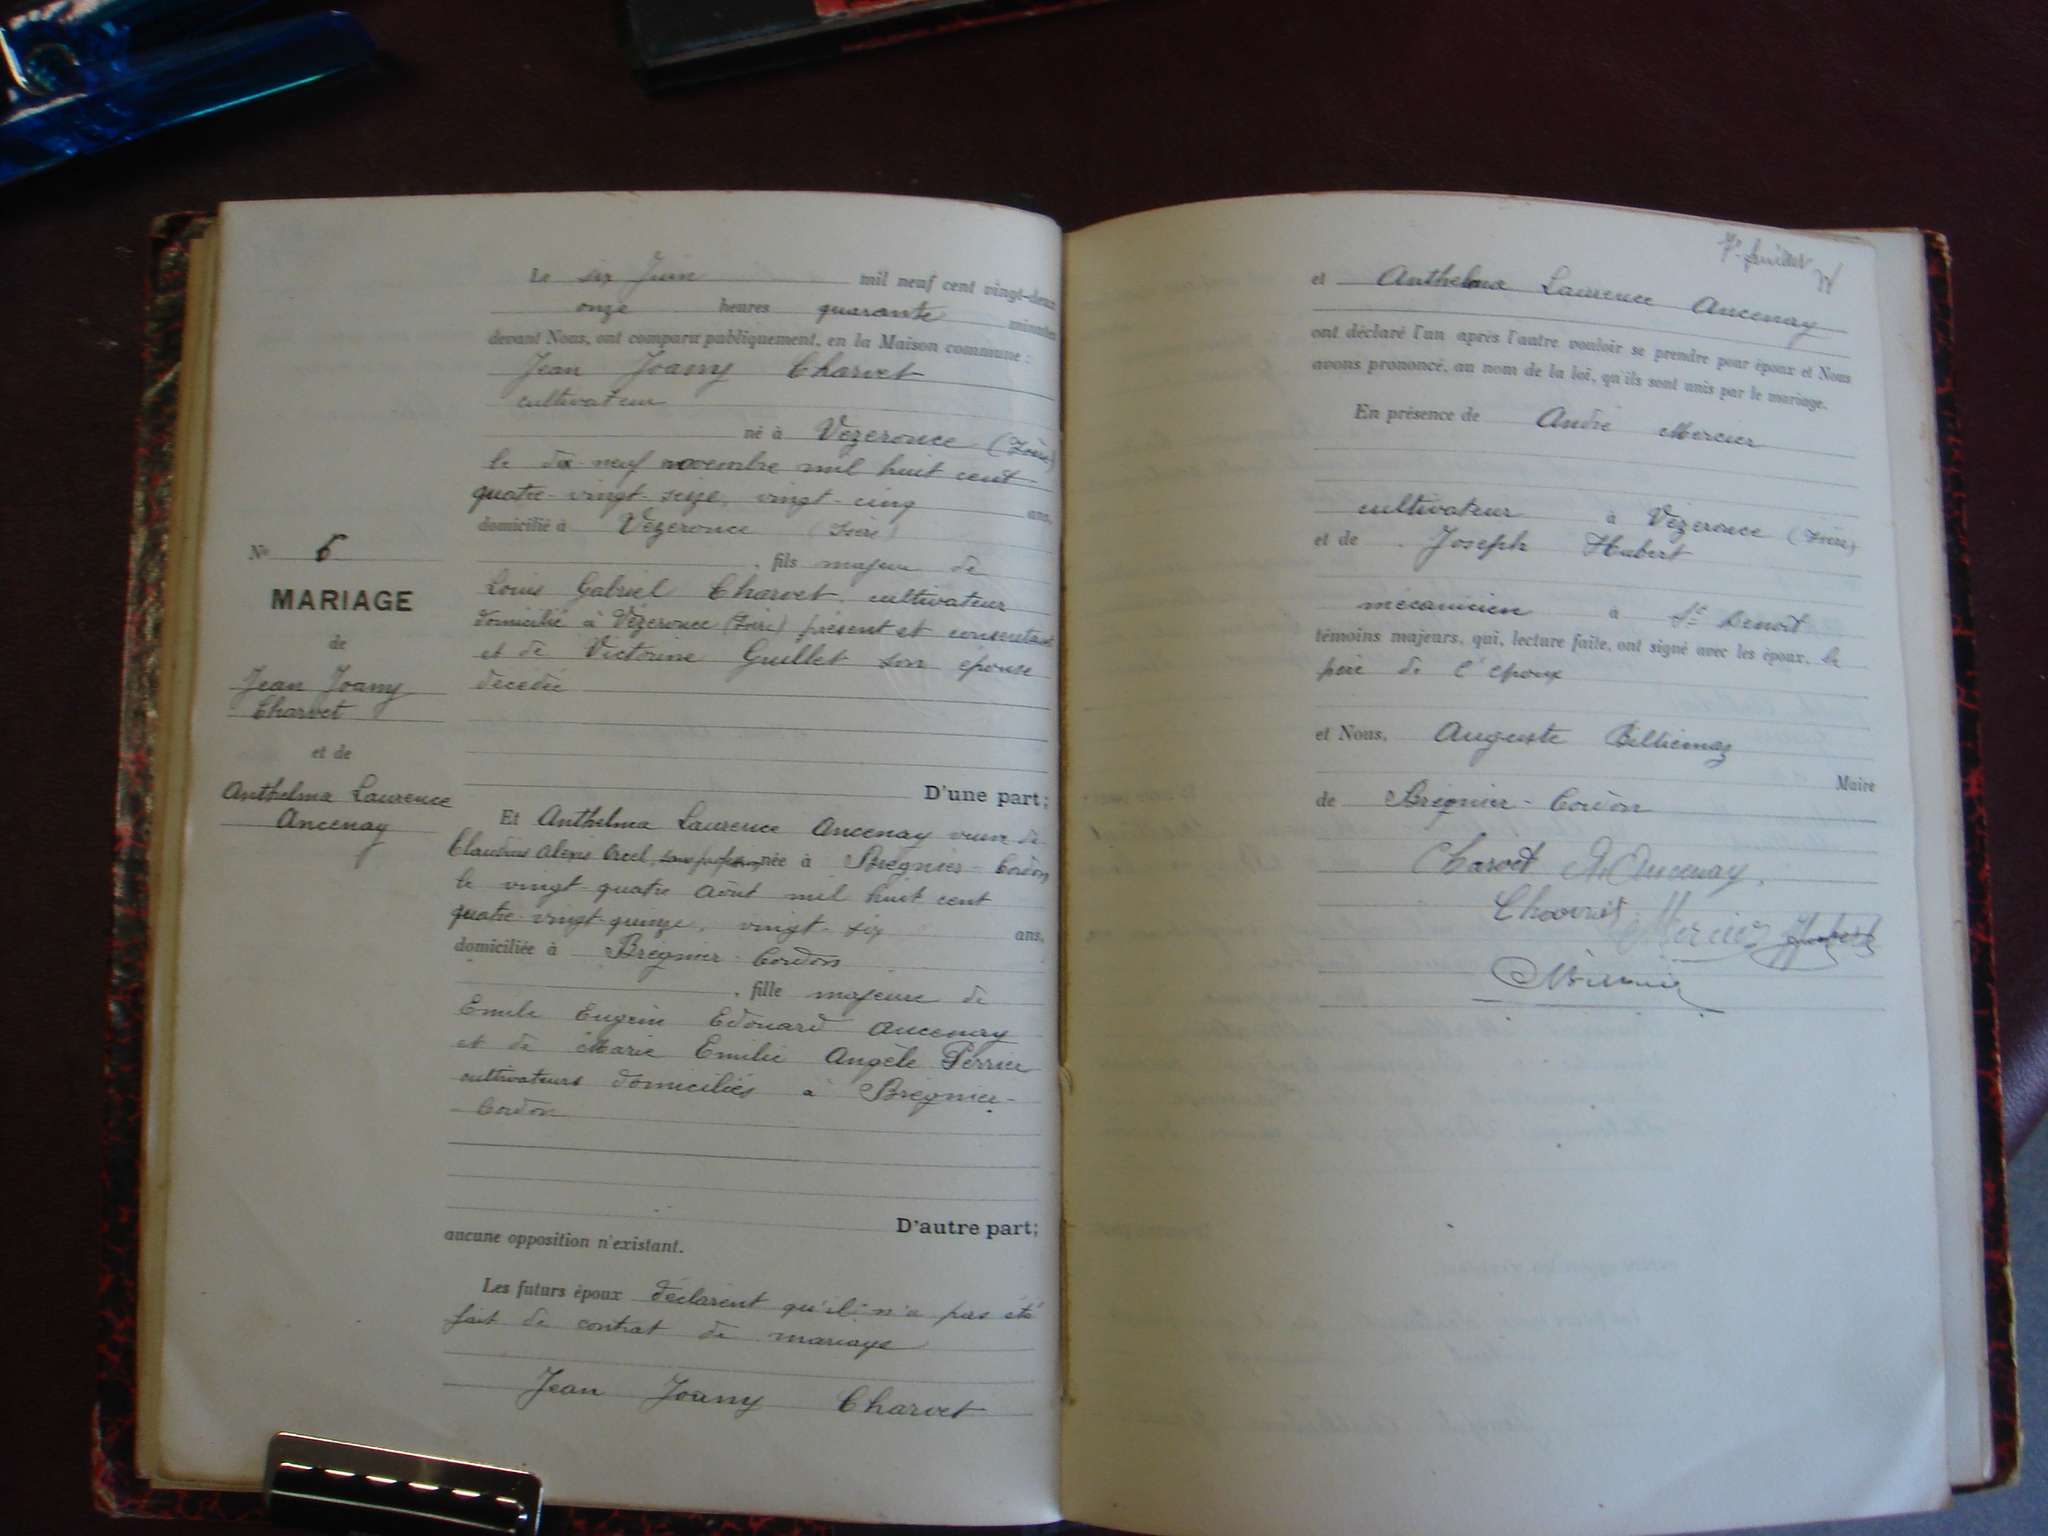 Le six Juin mil neuf cent vingt-deux
onze heures quarante minutes
devant Nous, ont comparu publiquement, en la Maison commune :
Jean Joany Charvet
cultivateur
né à Vézeronce (Isère)
le dix-neuf novembre mil huit cent
quatre-vingt-seize, vingt-cinq ans,
domicilié à Vézeronce (Isère)
, fils majeur de
Louis Gabriel Charvet, cultivateur
domicilié à Vézeronce (Isère) présent et consentant
et de Victorine Guillet son épouse
décédée
D'une part;
Nº 6
MARIAGE
de
Jean Joany
Charvet
et de
Anthelma Laurence
Ancenay
Et Anthelma Laurence Ancenay veuve de
Claudius Alexis sans profession, née à Brégnier-Cordon
le vingt-quatre Août mil huit cent
quatre-vingt-quinze, vingt-six ans,
domiciliée à Brégnier-Cordon
, fille majeure de
Emile Eugein Edouard Ancenay
et de Marie Emilie Angèle Perrier
cultivateurs domiciliés à Brégnier-
Cordon
D'autre part;
aucune opposition n'existant.
Les futurs époux déclarent qu'il n'a pas été
fait de contrat de mariage
Jean Joany Charvet
et Anthelma Laurence Ancenay
ont déclaré l'un après l'autre vouloir se prendre pour époux et Nous
avons prononcé, au nom de la loi, qu'ils sont unis par le mariage.
En présence de André Mercier
cultivateur à Vézeronce (Isère)
et de Joseph Hubert
mécanicien à St Benoit
témoins majeurs, qui, lecture faite, ont signé avec les époux, le
père de l'époux
et Nous, Auguste Billiemaz
Maire
de Brégnier-Cordon
Charvet A. Ancenay
Charvet Mercier Hubert